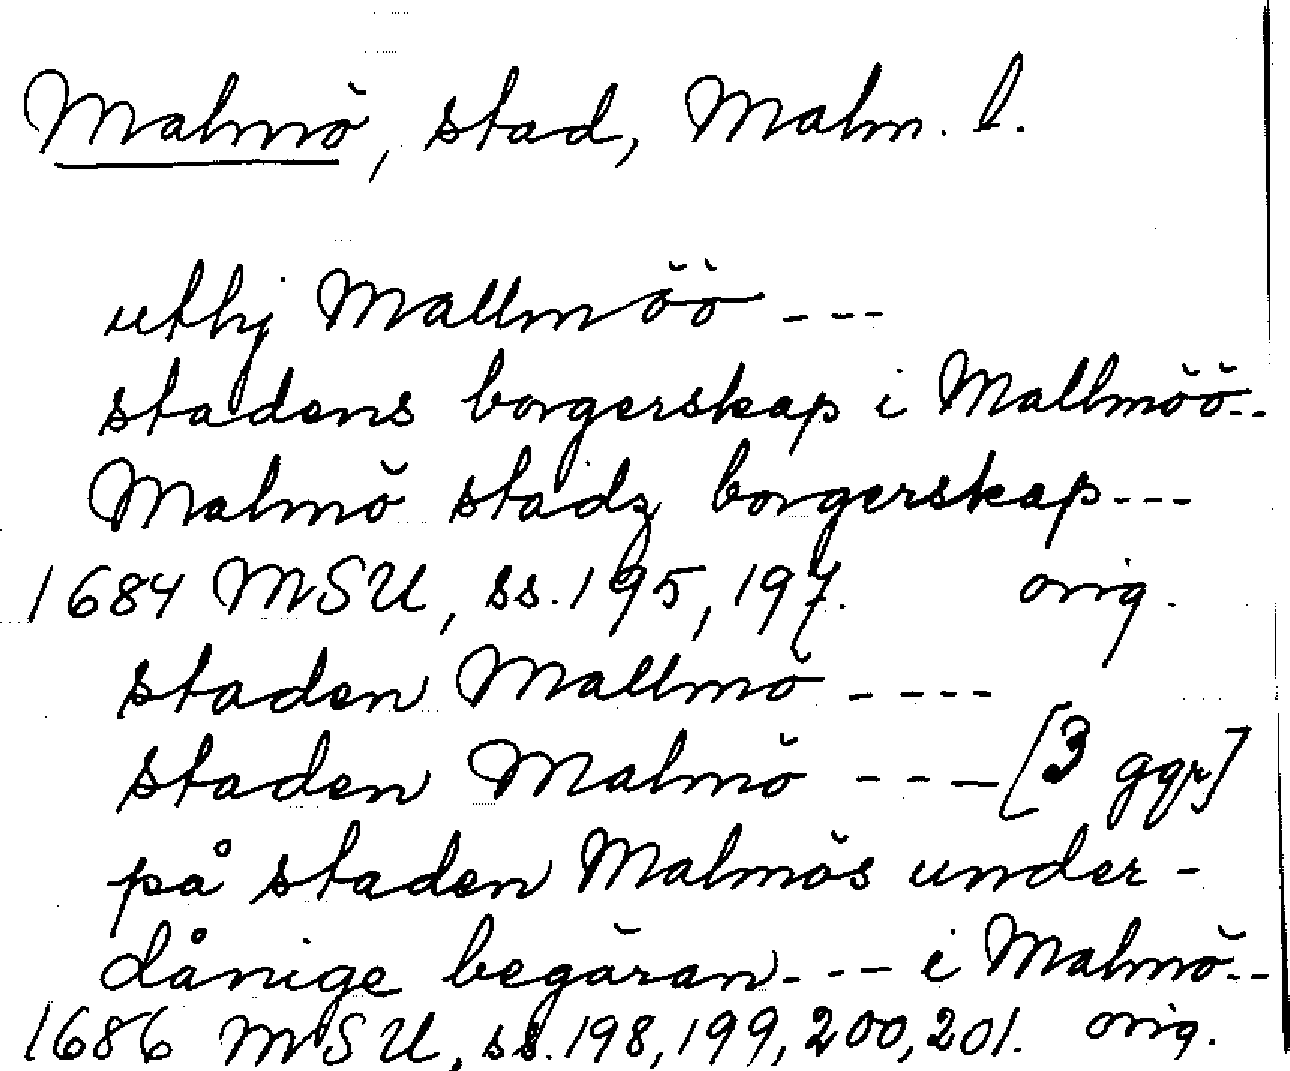 Malmö, stad, Malm. l.
uthj Mallmöö ---
stadens borgerskap i Mallmöö--
Malmö stadz borgerskap---
1684 MSU, ss. 195, 197. orig.
staden Mallmö ----
staden Malmö --- [3 ggr]
på staden Malmös under-
dånige begäran --- i Malmö--
1686 MSU, ss. 198, 199, 200, 201. orig.